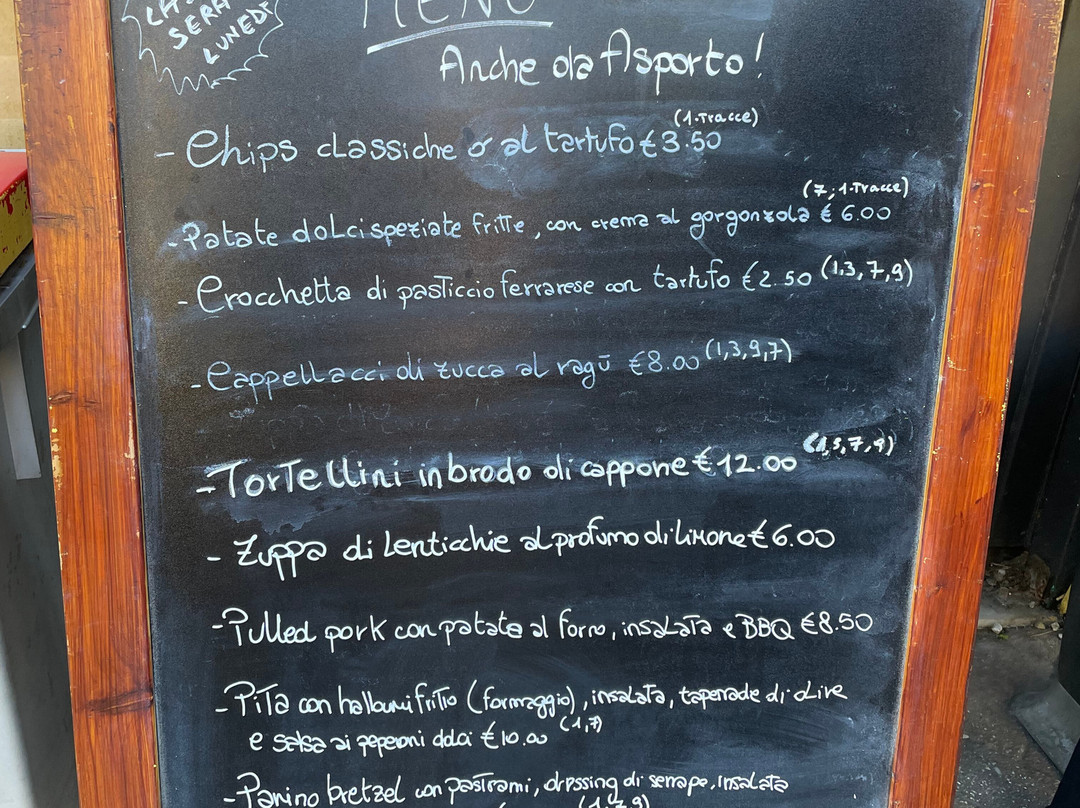 SERA
LUNEDÌ
MENÙ
Anche da Asporto!
(1.Tracce)
- Chips classiche o al tartufo € 3.50
(7,1.Tracce)
- Patate dolci speziate fritte, con crema al gorgonzola € 6.00
- Crocchetta di pasticcio ferrarese con tartufo € 2.50 (1,3,7,9)
- Cappellacci di zucca al ragù € 8.00 (1,3,9,7)
- Tortellini in brodo di cappone € 12.00 (1,3,7,9)
- Zuppa di lenticchie al profumo di limone € 6.00
- Pulled pork con patate al forno, insalata e BBQ € 8.50
- Pita con halloumi fritto (formaggio), insalata, tapenade di olive
e salsa ai peperoni dolci € 10.00 (1,7)
- Panino bretzel con pastrami, dressing di senape, insalata